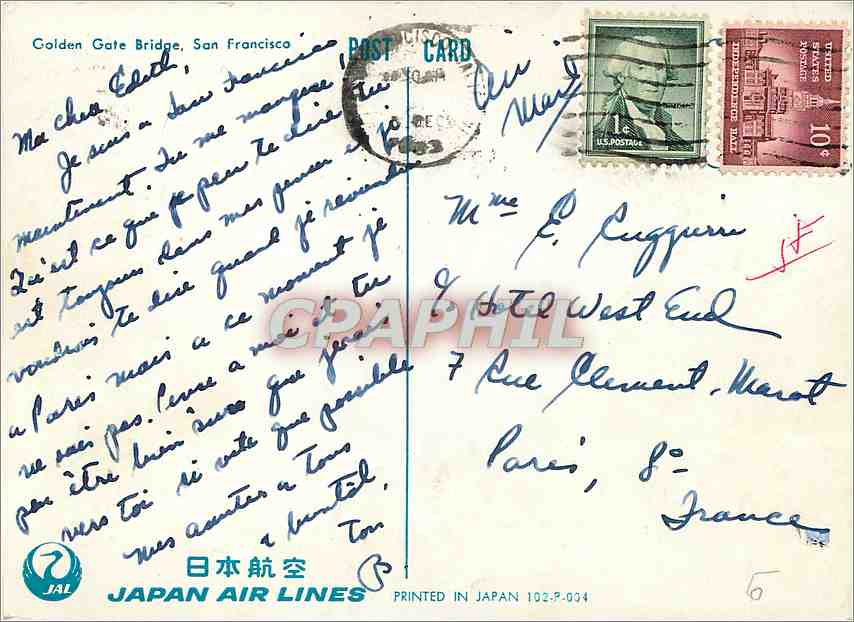 Golden Gate Bridge, San Francisco
POST CARD
Air
Mail
1¢
U.S. POSTAGE
UNITED
STATES
POSTAGE
INDEPENDENCE HALL
10¢
Ma cher Edith,
Je suis a San Francisco
maintenant. Tu me manques,
Qu'est ce que je peu te dire tu
est toujours dans mes penser et je
voudrais te dire quand je reviendra
a Paris mais a ce moment je
ne sais pas. Pense a moi et tu
peu être bien sure que je
vers toi si vite que possible
mes a tous
a bientôt,
ton
B
Mme E. Ruggieri
c/o Hotel West End
7 Rue Clement-Marot
Paris, 8°
France
5F
CPAPHIL
JAL
日本航空
JAPAN AIR LINES
PRINTED IN JAPAN 102-P-004
5